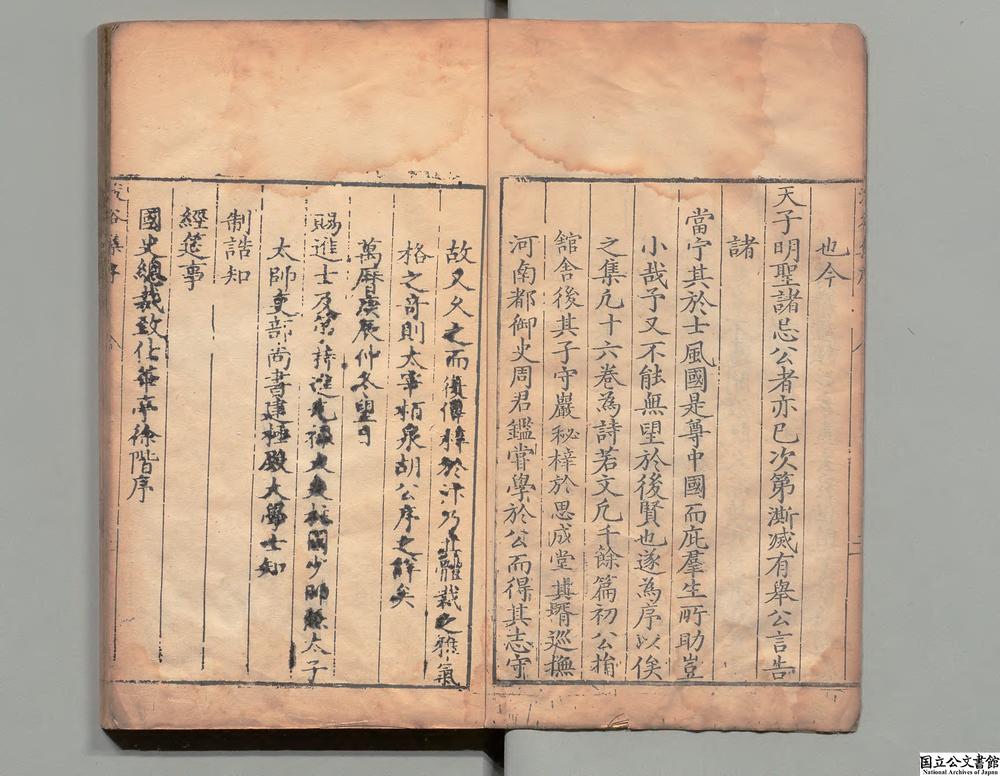 也今
天子明聖諸忌公者亦已次第澌滅有舉公言告
諸
當宁其於士風國是尊中國而庇羣生所助豈
小哉予又不能無望於後賢也遂為序以俟
之集凡十六卷為詩若文凡千餘篇初公捐
館舍後其子守巖秘梓於思成堂其壻巡撫
河南都御史周君鑑嘗學於公而得其志守
故又文之而復傳梓於汴乃其體裁之雅氣
格之奇則太宰栢泉胡公序之詳矣
萬曆庚辰仲冬望日
賜進士及第特進光祿大夫柱國少師兼太子
太師吏部尚書建極殿大學士知
制誥知
經筵事
國史總裁致仕華亭徐階序
国立公文書館
National Archives of Japan